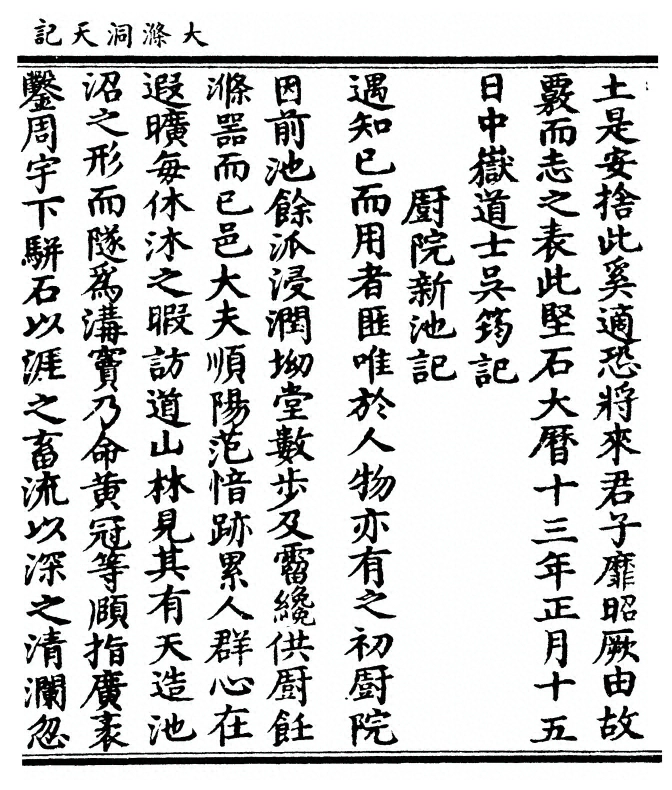 大滌洞天記
土是安捨此奚適恐將來君子靡昭厥由故
覈而志之表此堅石大曆十三年正月十五
日中嶽道士吳筠記
厨院新池記
遇知已而用者匪唯於人物亦有之初厨院
因前池餘派浸潤坳堂數步及霤纔供厨飪
滌器而已邑大夫順陽范愔跡累人群心在
遐曠每休沐之暇訪道山林見其有天造池
沼之形而隧爲溝竇乃命黄冠等頤指廣袤
鑿周宇下駢石以涯之畜流以深之清瀾忽